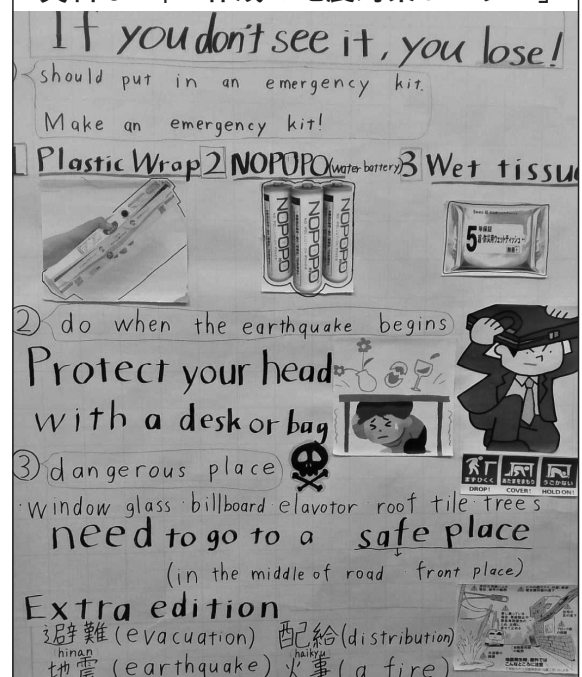 If you don't see it, you lose!
should put in an emergency kit.
Make an emergency kit!
1 Plastic Wrap 2 NOPOPO (water battery) 3 Wet tissu
NOPOPO NOPOPO NOPOPO
5年保証
② do when the earthquake begins
Protect your head
with a desk or bag
③ dangerous place
まずひくく あたまをまもり うごかない
DROP! COVER! HOLD ON!
window glass billboard elavotor roof tile trees
need to go to a safe place
(in the middle of road front place)
Extra edition
避難 (evacuation) 配給 (distribution)
hinan haikyu
地震 (earthquake) 火事 (a fire)